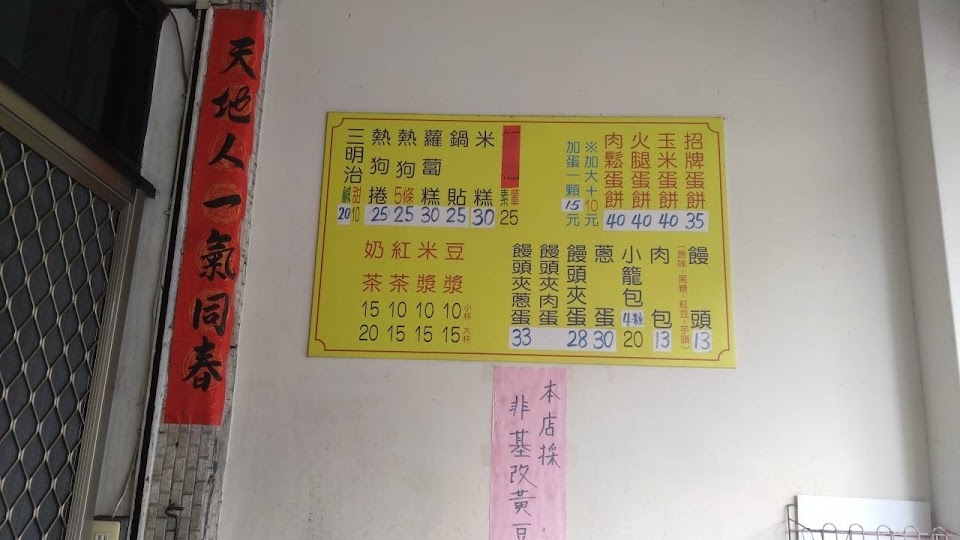 天地人一氣同春
招牌蛋餅 35
玉米蛋餅 40
火腿蛋餅 40
肉鬆蛋餅 40
※加大+10元
加蛋一顆15元
葷素 25
米糕 30
鍋貼 25
蘿蔔糕 30
熱狗5條 25
熱狗捲 25
三明治 甜10 鹹20
饅頭 13
(原味、黑糖、紅豆、芋頭)
肉包 13
小籠包 4粒 20
蔥蛋 30
饅頭夾蛋 28
饅頭夾肉蛋
饅頭夾蔥蛋 33
豆漿 10小杯 15大杯
米漿 10 15
紅茶 10 15
奶茶 15 20
本店採
非基改黃豆